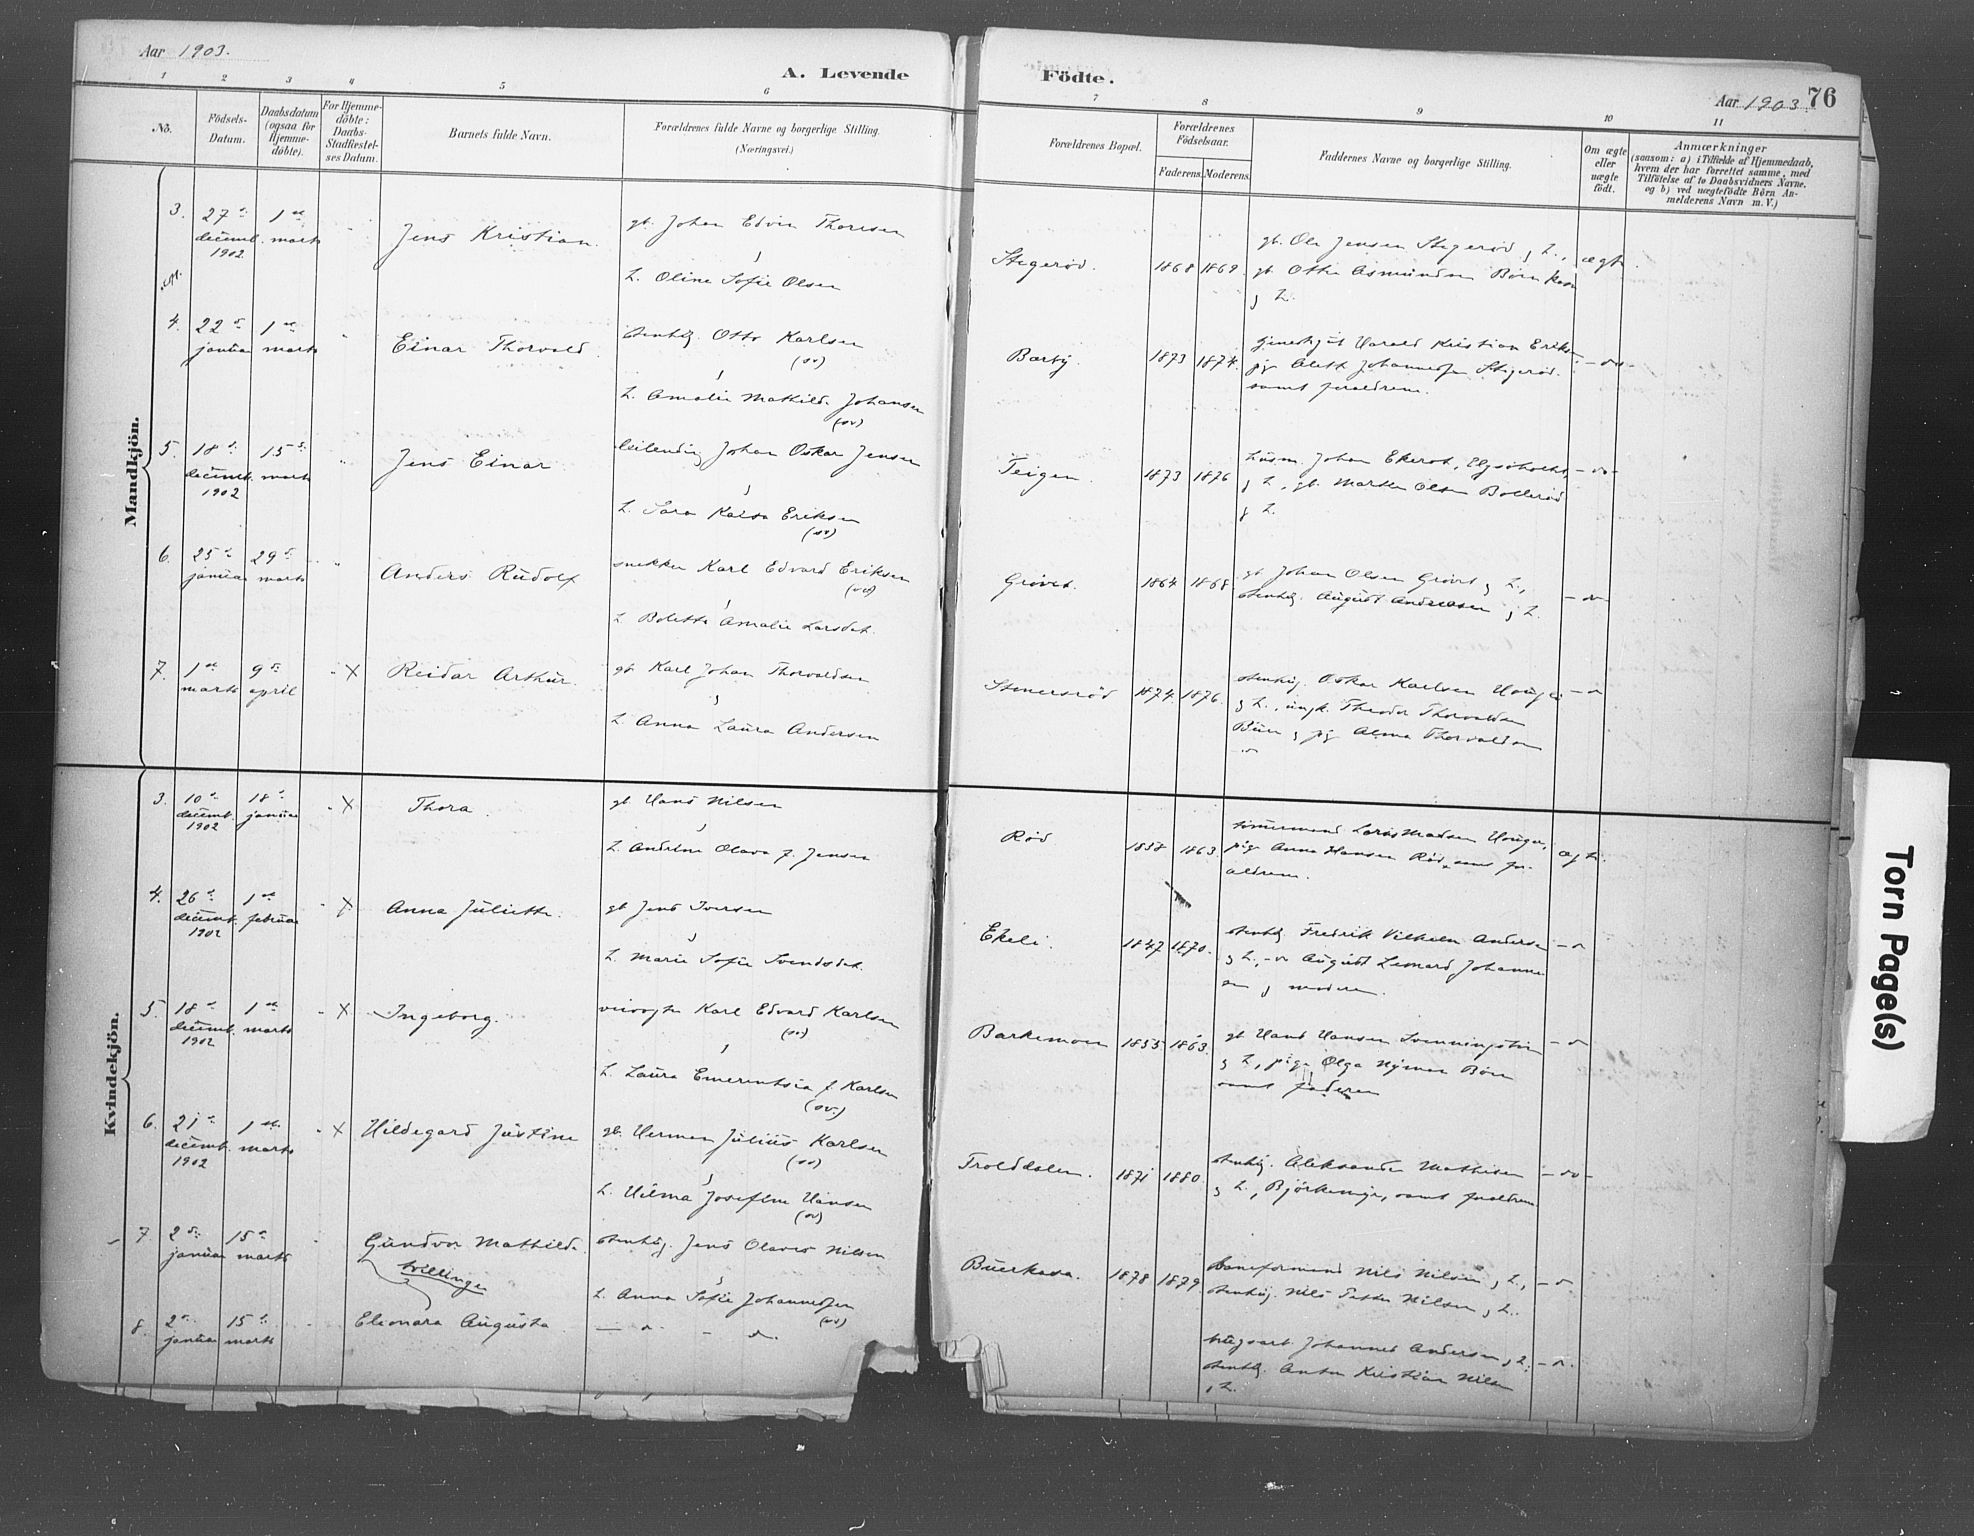 Aar 1903.
A. Levende Födte.
Aar 1903. 76
1 2 3 4 5 6 7 8 9 10 11
No.
Födsels-Datum.
Daabsdatum (ogsaa for Hjemme-döbte).
For Hjemme-döbte: Daabs-Stadfæstel-ses Datum.
Barnets fulde Navn.
Forældrenes fulde Navne og borgerlige Stilling.
(Næringsvei.)
Forældrenes Bopæl.
Forældrenes Födselsaar.
Faderens. Moderens.
Faddernes Navne og borgerlige Stilling.
Om ægte eller uægte födt.
Anmærkninger
(saasom: a) i Tilfælde af Hjemmedaab,
hvem der har forrettet samme, med
Tilföielse af to Daabsvidners Navne,
og b) ved uægtefödte Börn An-
melderens Navn m. V.)
Mandkjön.
3. 27de decemb. 1902 1ste marts
Jens Kristian.
gb. Johan Edvin Thoresen
&
h. Oline Sofie Olsen
Stegerød. 1868 1869
gb. Ole Jensen Stegerød & h.,
gb. Otto Asmundsen Buerkasa
& h.
ægte.
4. 22de januar 1ste marts
Einar Thorvald.
stenhug. Otto Karlsen
(sv)
&
h. Amalie Mathilde Johansen
(sv)
Barby. 1873 1874.
Harald Kristian Eriksen,
pig. Alette Johannessen Stegerød.
samt forældrene.
-do-
5. 18de decemb. 1902 15de marts
Jens Einar
leilending Johan Oskar Jensen
&
h. Sara Kaisa Eriksen
(sv)
Teigen. 1873 1876
husm. Johan Ekerot,
& h., gb. Martin Olsen Bollerød
& h.
-do-
6. 25de januar 29de marts
Anders Rudolf
snekker Karl Edvard Eriksen
(sv)
&
h. Bolette Amalie Larsdat.
Grövet. 1864 1868.
gb. Johan Olsen Grövet & h.,
stenhug. August Andersen & h.
-do-
7. 1ste marts 9de april X
Reidar Arthur.
gb. Karl Johan Thorvaldsen
&
h. Anna Laura Andersen
Stenersrød 1874. 1876.
stenhug. Oskar Karlsen Hougen
& h., ungk. Theodor Thorvaldsen
Buer & pig Alma Thorvaldsen
-do-
Kvindekjön.
3. 10de decemb. 1902 18de januar X
Thora.
gb. Hans Nilsen
&
h. Andrine Olava f. Jensen
Rød 1858 1863.
tömmermand Lars Madsen Hougen,
pige Anna Hansen Rød, samt for-
ældrene.
ægte.
4. 26de decemb. 1902 1ste februar X
Anna Juliette.
gb. Jens Iversen
&
h. Marie Sofie Svendsdat.
Ekeli. 1847 1870.
stenhug. Fredrik Vilhelm Andersen
& h., -do August Lennard Johanne-
sen & moderen.
-do
5. 18de decemb. 1902 1ste marts X
Ingeborg.
veivogter Karl Edvard Karlsen
(sv)
&
h. Laura Emerentsia f. Karlsen
(sv.)
Barkemoen 1855 1863.
gb. Hans Hansen
& h., pige Olga Nyman Buer
samt faderen
-do
6. 21de decemb. 1902 1ste marts X
Hildegard Justine
gb. Herman Julius Karlsen
(sv)
&
h. Hilma Josefine Hansen
(sv)
Trolddalen. 1871 1880.
stenhug. Aleksander Mathisen
& h., samt forældrene
-do-
7. 2den januar 15de marts
Gundvor Mathilde.
tvillinger
stenhug. Jens Olaves Nilsen
&
h. Anna Sofie Johannessen
(sv)
Buerkasa. 1878 1879.
baneformand Nils Nilsen & h.,
stenhug. Nils Petter Nilsen & h.
-do
8. 2den januar 15de marts
Elionara Augusta
-do- -do.
Johannes Andersen & h.
stenhug. Anton Kristian Nilsen
& h.
-do.
Torn Page(s)